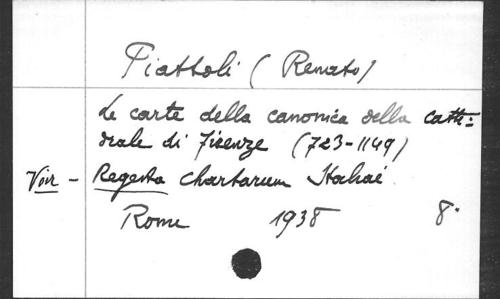 Piattoli (Renato)
Le carte della canonica della catte-
drale di Firenze (723-1149)
Voir - Regesta Chartarum Italiae.
Rome 1938 8°